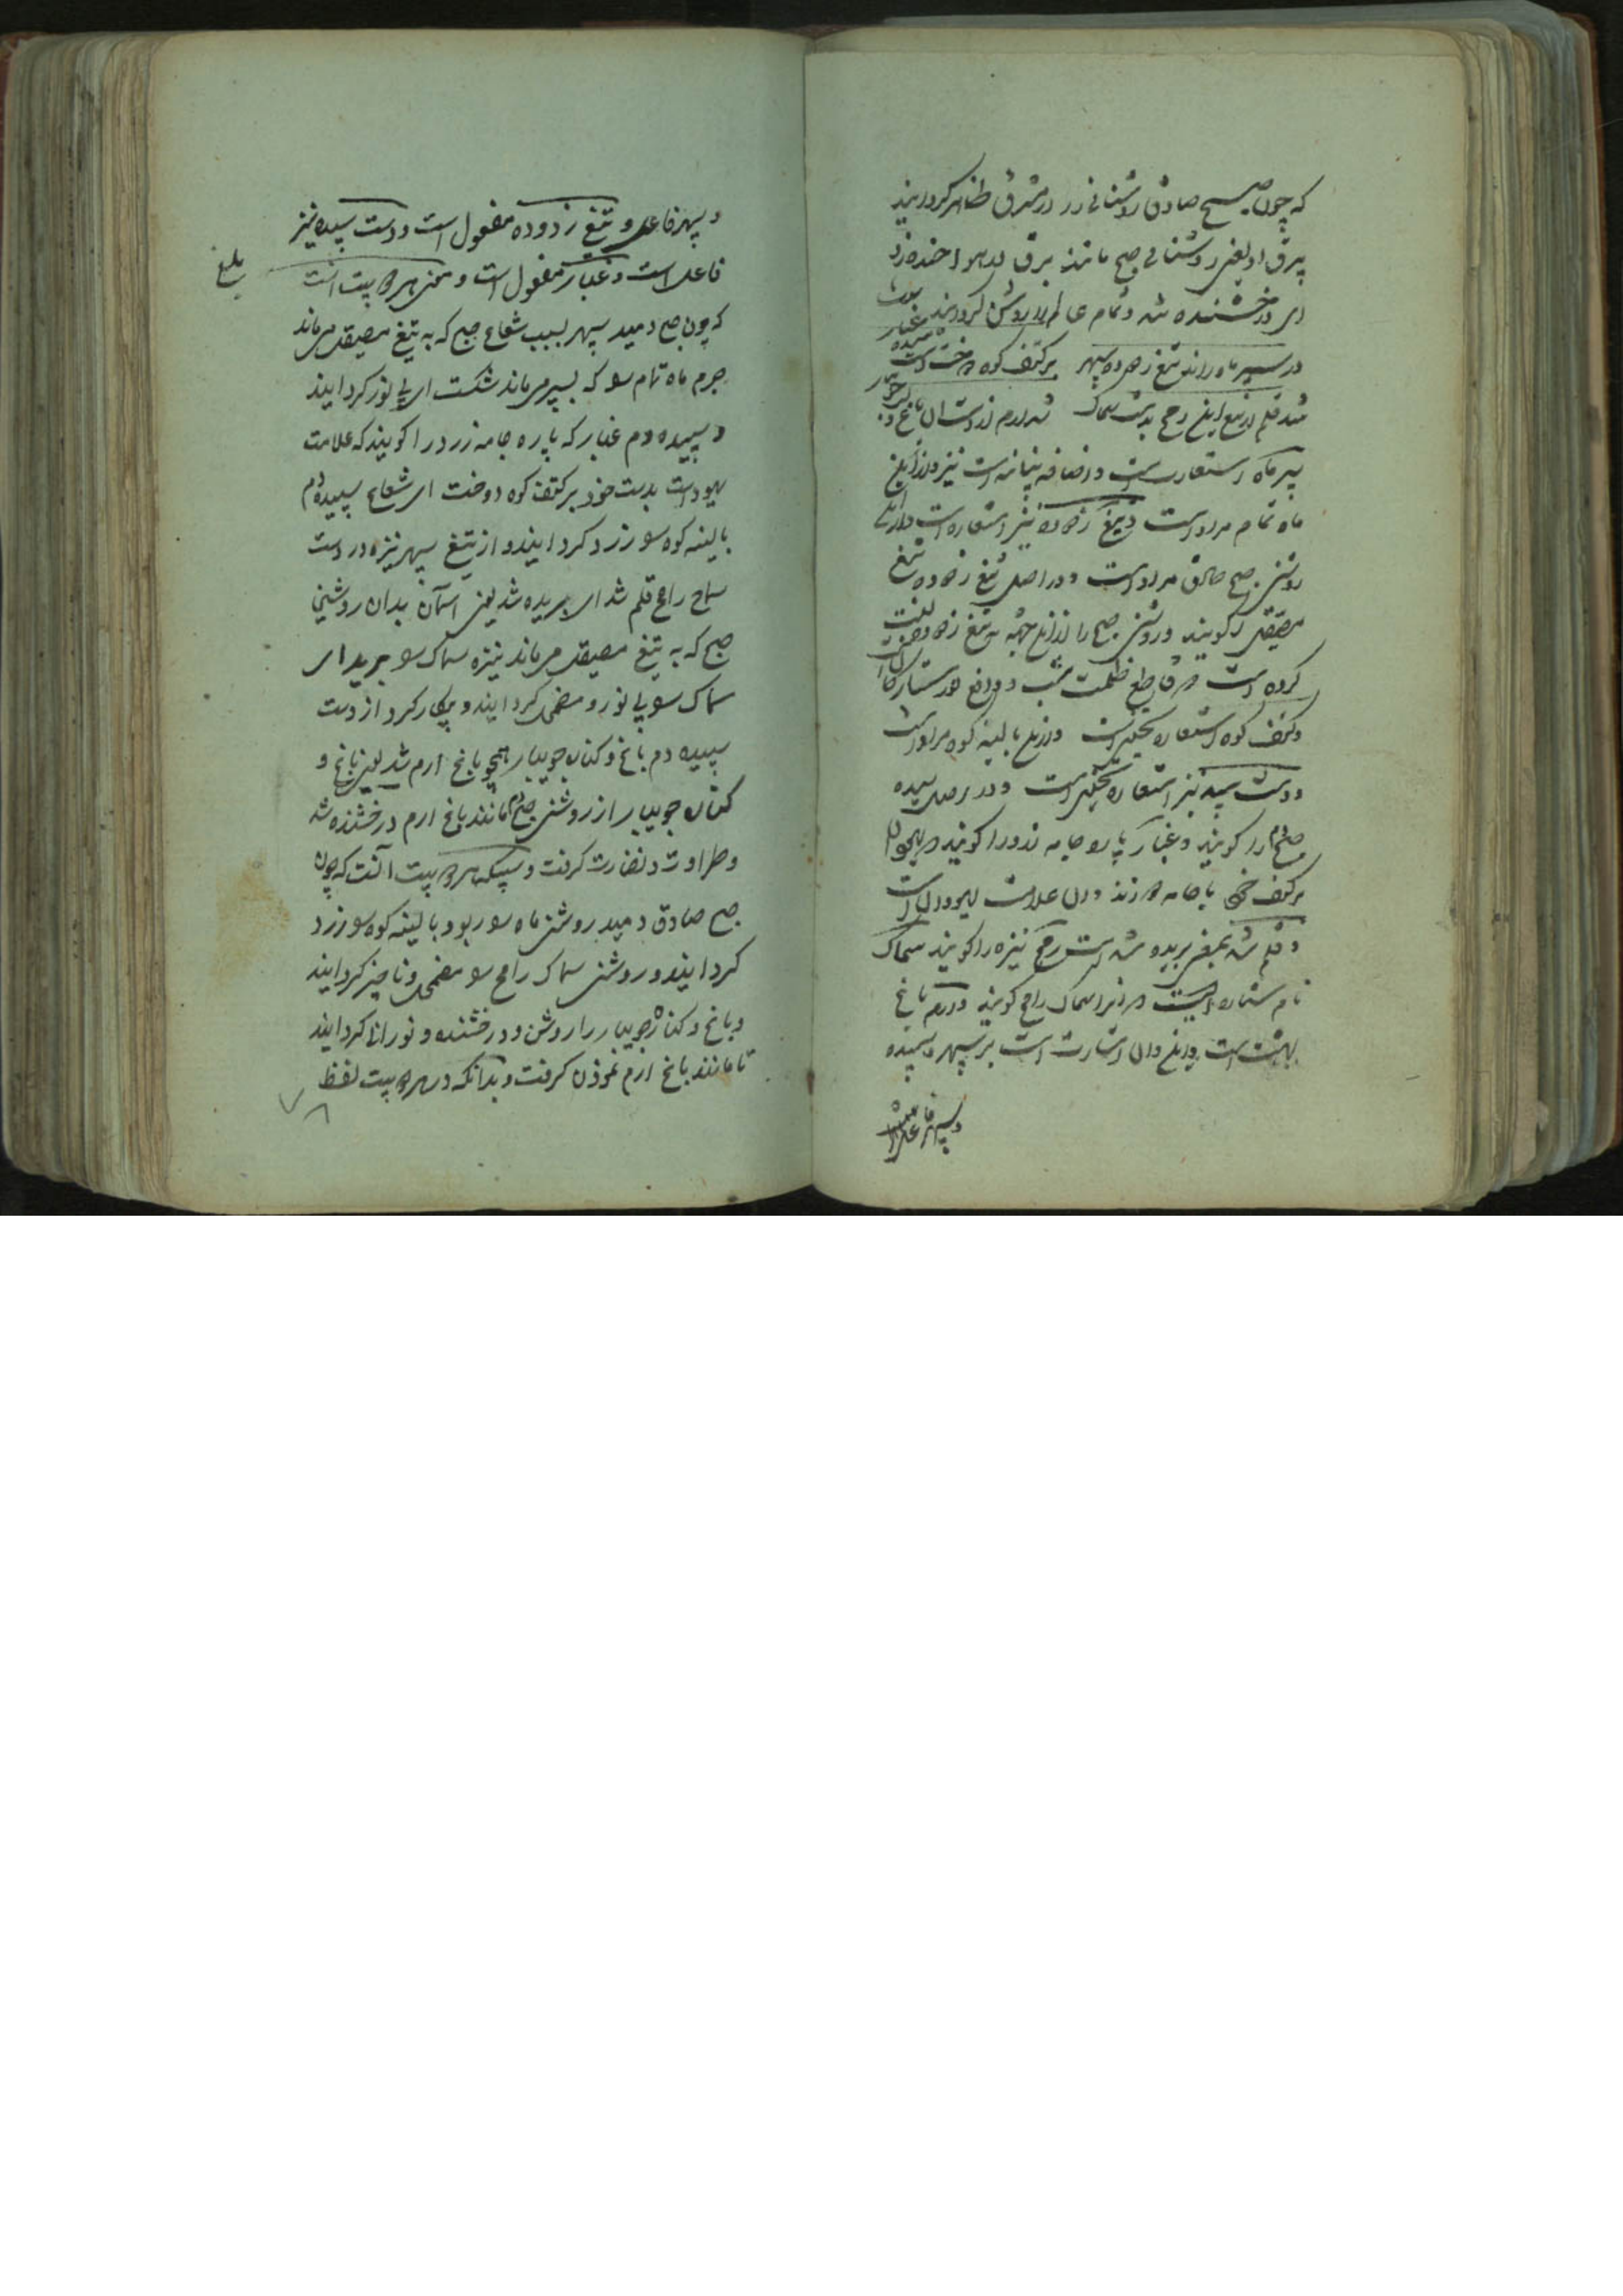 که چون صبح صادق روشنائی زر در مشرق ظاهر گردانید
برق او یعنی روشنائی صبح مانند برق در هوا خنده زد
ای درخشنده شد و تمام عالم را روشن گردانید
در سپر ماه راند تیغ زدوده سپهر بر کتف کوه دوخت دست سپیده غبار
شد قلم از تیغ رمح بدست سماک شد ارم از دست آن باغ و لب جویبار
سپر ماه استعارتست و اضافه بیانیه است نیز و از این
ماه تمام مراد است و تیغ زدوده نیز استعاره است و از این
روشنی صبح صادق مراد است و در اصل تیغ زدوده تیغ
مصیقل را گویند و روشنی صبح را از این جهت به تیغ زدوده صفت
کرده است که قاطع ظلمت شب و دافع نور ستارگان است
و کتف کوه استعاره تخییلی است و از این بالینه کوه مراد است
و دست سپیده نیز استعاره تخییلی است و در اصل سپیده
صبحدم را گویند و غبار پاره جامه زرد را گویند که یهودان
بر کتف خود با جامه دوزند و آن علامت یهودان است
و قلم شد بمعنی بریده شد است رمح نیزه را گویند سماک
نام ستاره ایست که آنرا سماک رامح گویند و ارم باغ
بهشت است و این و آن اشارت است بر سپهر و سپیده
و سپهر فاعل است
و سپهر فاعل و تیغ زدوده مفعول است و دست سپیده نیز
فاعل است و غبار مفعول است و معنی هر دو بیت آنست
بلغ
که چون صبح دمید سپهر بسبب شعاع صبح که به تیغ مصیقل میماند
جرم ماه تمام سو که بسپر میماند شکست ای بی نور گردانید
و سپیده دم غبار که پاره جامه زرد را گویند که علامت
یهود است بدست خود بر کتف کوه دوخت ای شعاع سپیده دم
بالینه کوه سو زرد گردانید و از تیغ سپهر نیزه در دست
سماک رامح قلم شد ای بریده شد یعنی آسمان بدان روشنی
صبح که به تیغ مصیقل میماند نیزه سماک سو برید ای
سماک سو بی نور و مضمحل گردانید و بیکار کرد از دست
سپیده دم باغ و کنار جویبار همچو باغ ارم شد یعنی باغ و
کنار جویبار از روشنی صبحدم مانند باغ ارم درخشنده شد
و طراوت و نضارت گرفت و سبک هر دو بیت آنست که چون
صبح صادق دمید روشنی ماه سو ربود بالینه کوه سو زرد
گردانید و روشنی سماک رامح سو مضمحل و ناچیز گردانید
و باغ و کناره جویبار را روشن و درخشنده و نورانی گردانید
تا مانند باغ ارم نمودن گرفت و بدانکه در هر دو بیت لفظ
۷۸